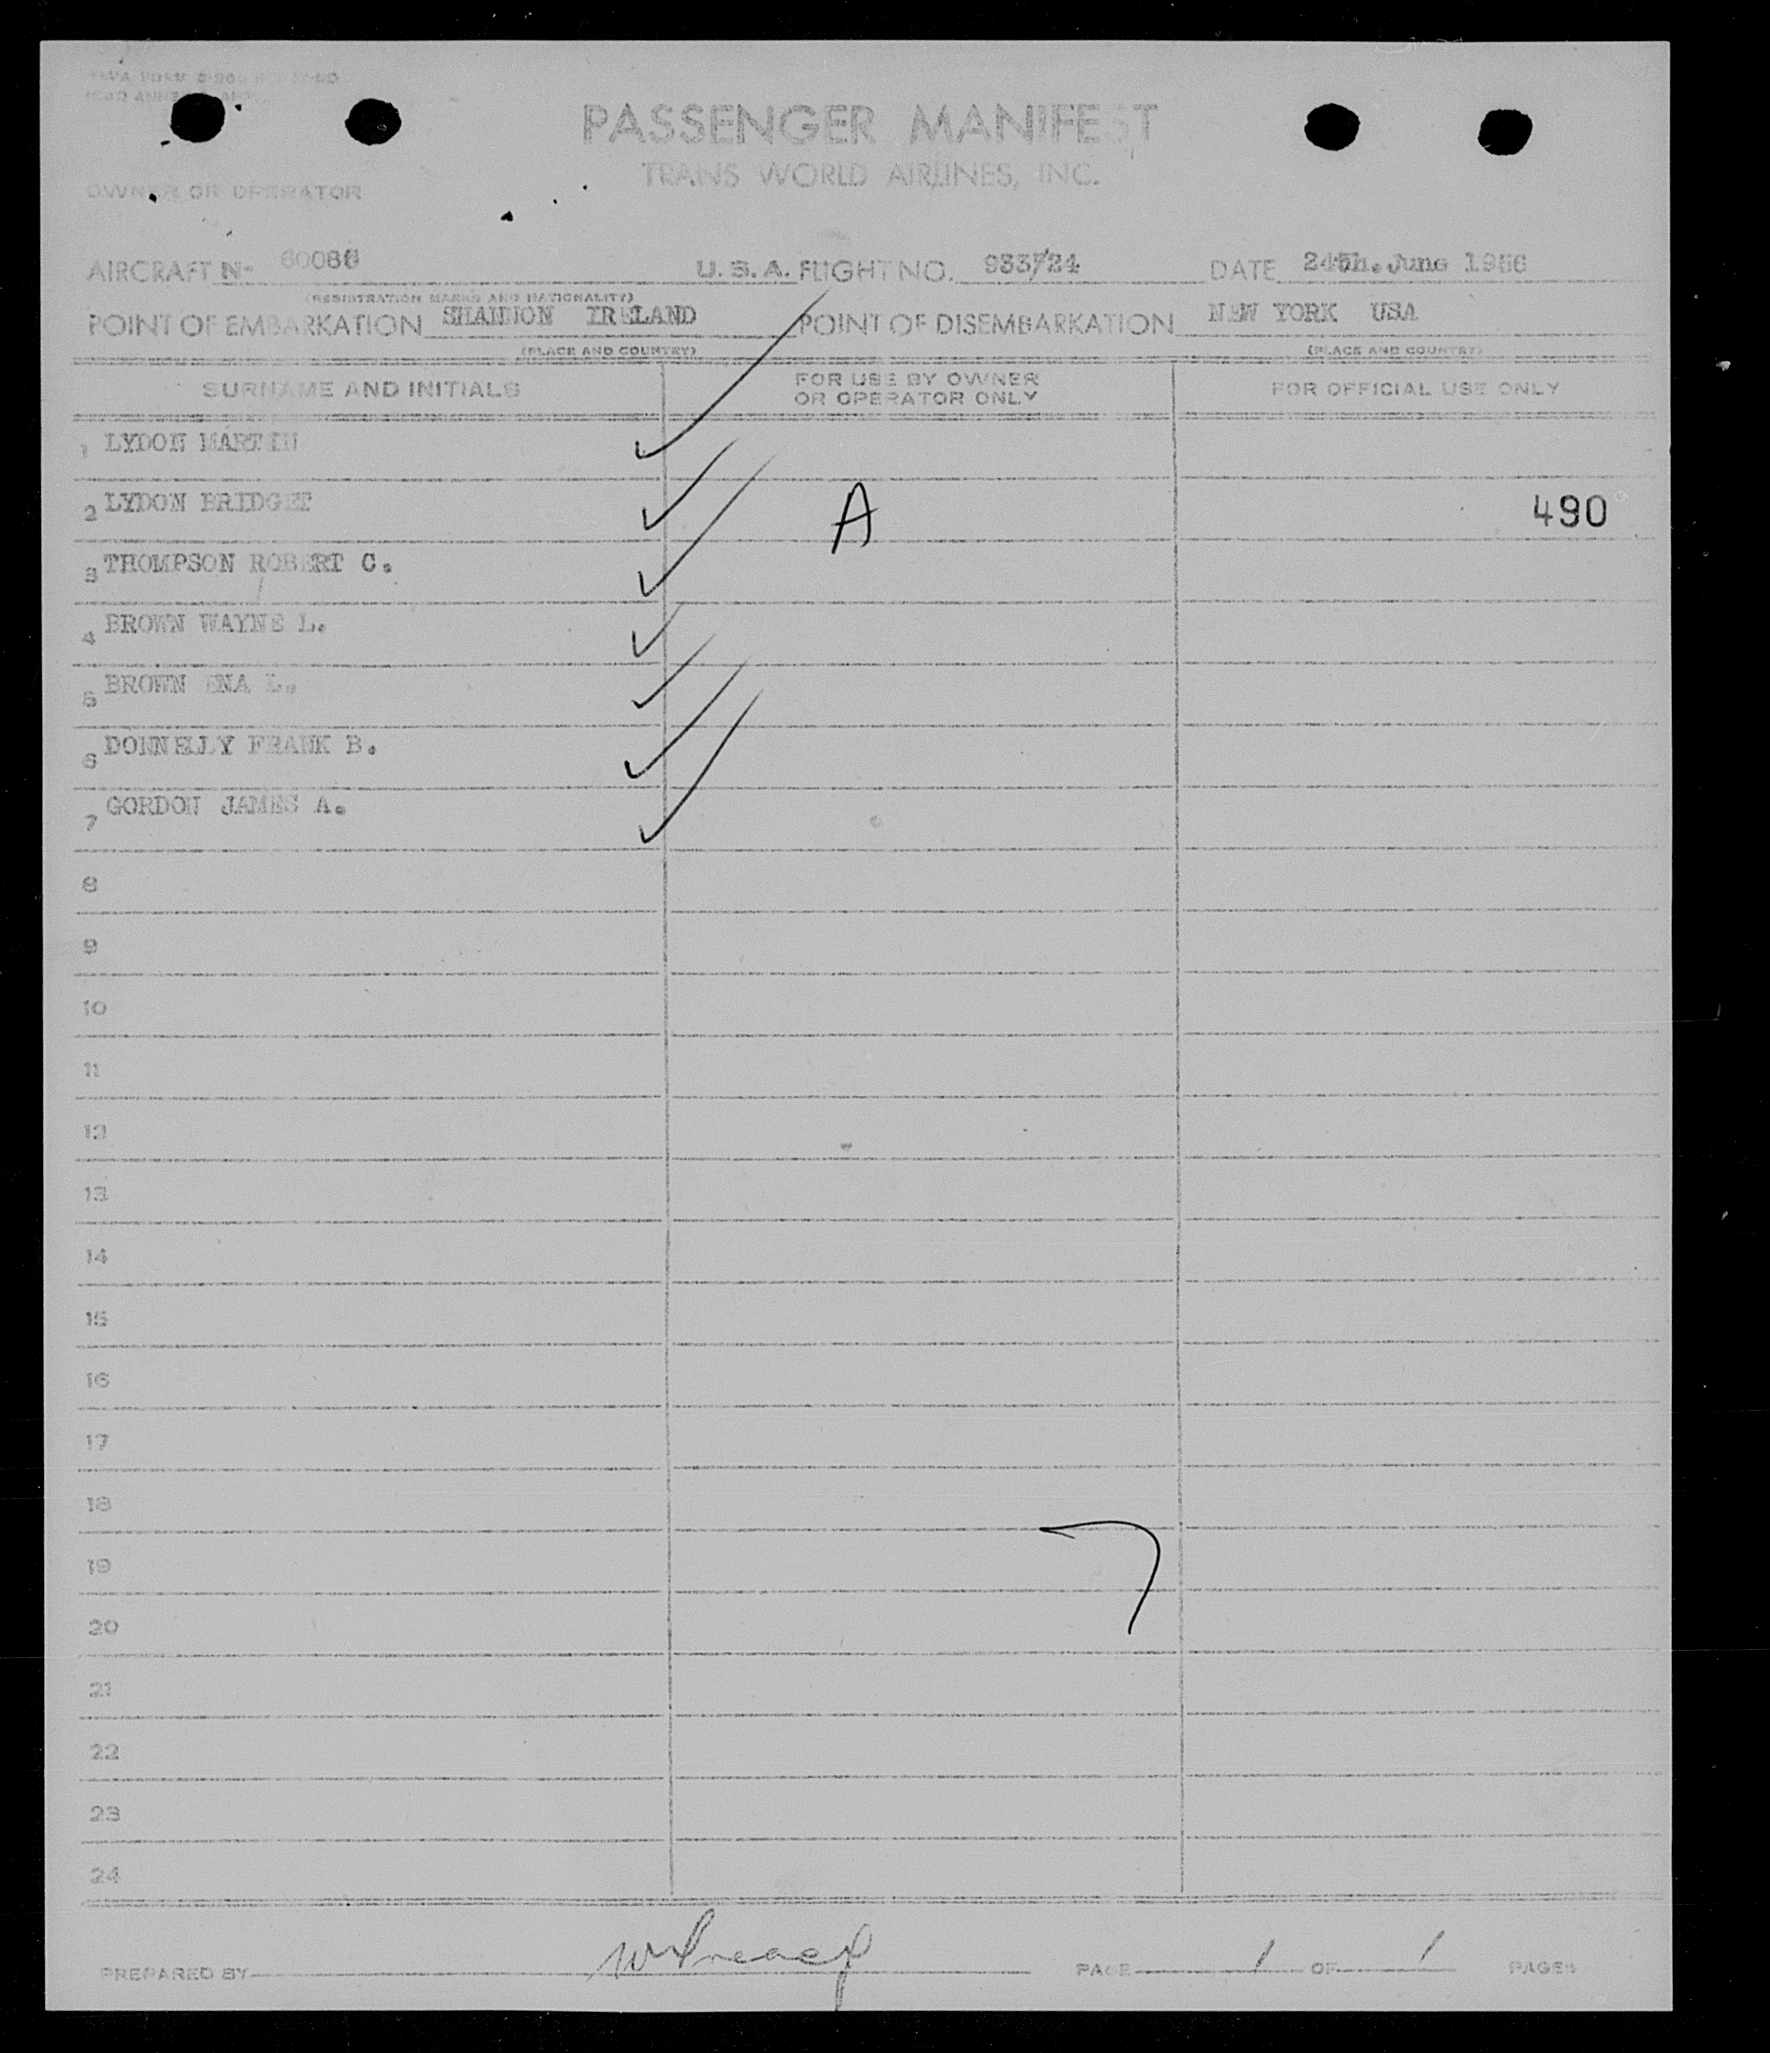 PASSENGER MANIFEST
TRANS WORLD AIRLINES, INC.
OWNER OR OPERATOR
AIRCRAFT N- 60086 U. S. A. FLIGHT NO. 933/24 DATE 24th. June 1956
(REGISTRATION MARKS AND NATIONALITY)
POINT OF EMBARKATION SHANNON IRELAND POINT OF DISEMBARKATION NEW YORK USA
(PLACE AND COUNTRY) (PLACE AND COUNTRY)
SURNAME AND INITIALS FOR USE BY OWNER OR OPERATOR ONLY FOR OFFICIAL USE ONLY
1 LYDON MARTIN
2 LYDON BRIDGET A 490
3 THOMPSON ROBERT C.
4 BROWN WAYNE L.
5 BROWN ENA L.
6 DONNELLY FRANK B.
7 GORDON JAMES A.
8
9
10
11
12
13
14
15
16
17
18
19
20
21
22
23
24
PREPARED BY PAGE 1 OF 1 PAGES